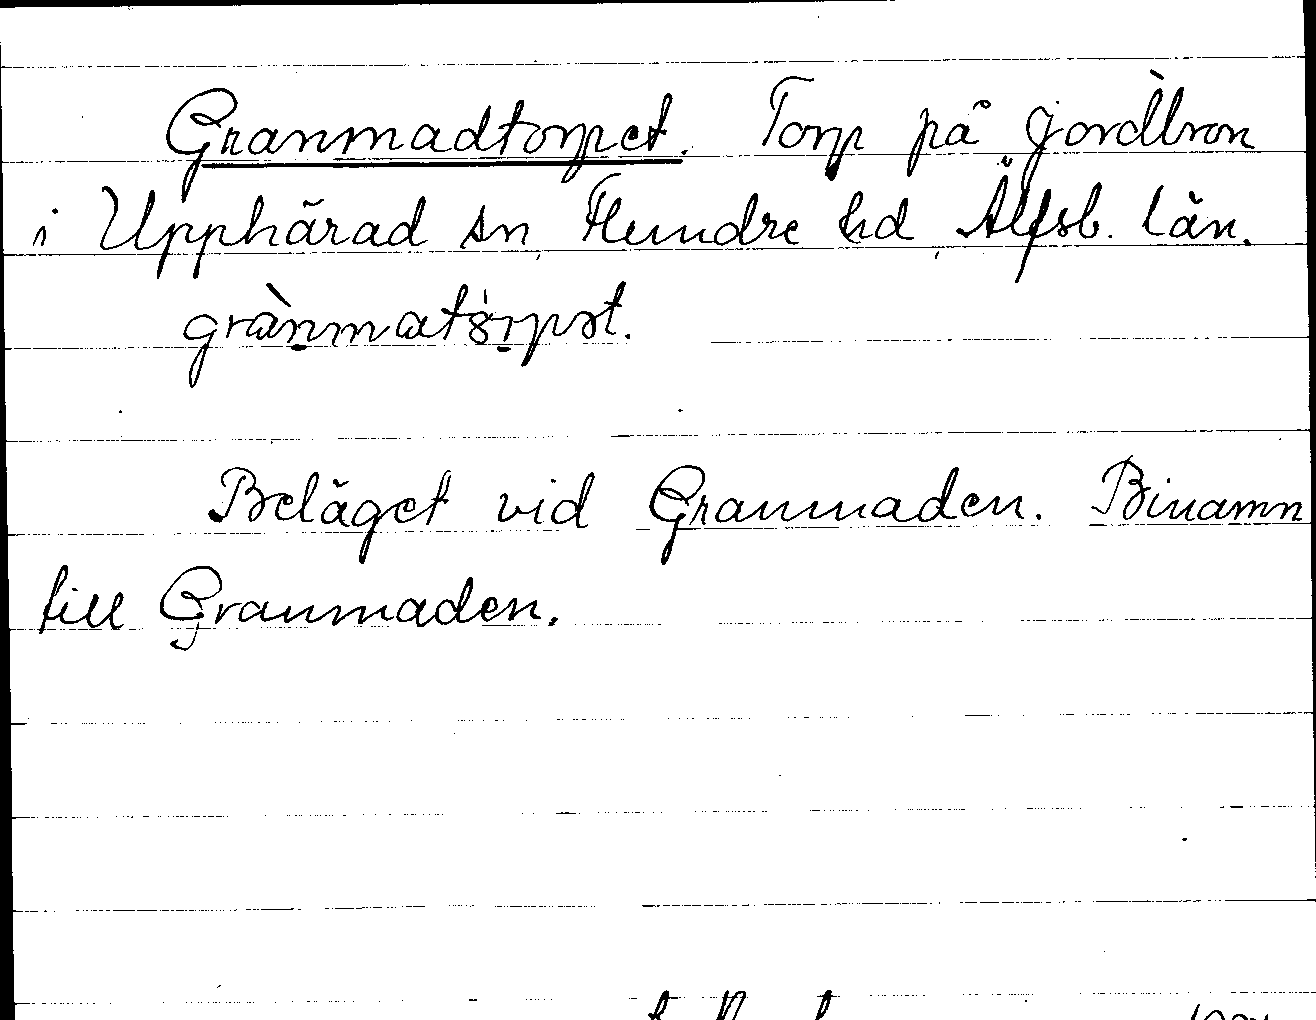 Granmadtorpet. Torp på Jordbron
i Upphärad sn, Flundre hd, Älfsb. län.
grànmatŏ̀rpət.
Beläget vid Granmaden. Binamn
till Granmaden.